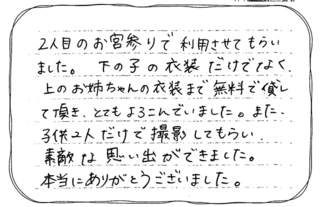 2人目のお宮参りで利用させてもらい
ました。下の子の衣装だけでなく、
上のお姉ちゃんの衣装まで無料で貸し
て頂き、とてもよろこんでいました。また、
子供2人だけで撮影してもらい
素敵な思い出ができました。
本当にありがとうございました。